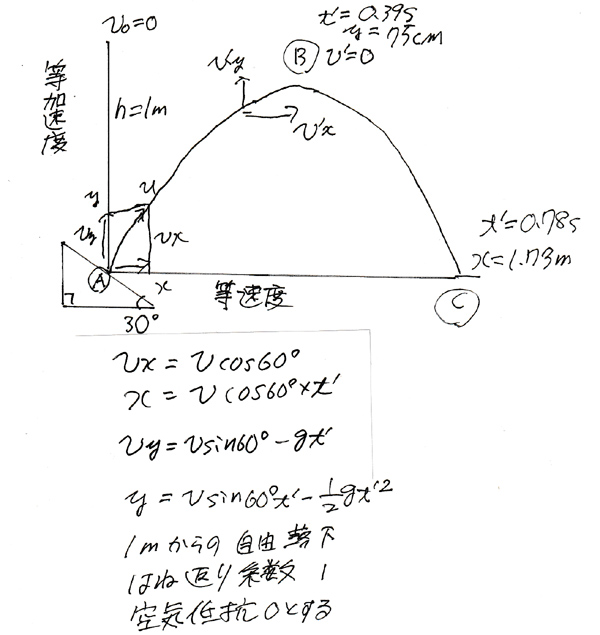 v₀=0
t'=0.39s
y=75cm
Ⓑ v'=0
等加速度
h=1m
v'y
v'x
y
v
vy
vx
t'=0.78s
x=1.73m
Ⓐ
x
等速度
Ⓒ
30°
vx = v cos60°
x = v cos60°×t'
vy = v sin60° - gt'
y = v sin60°t' - 1/2 gt'²
1mからの自由落下
はね返り係数 1
空気低抗0とする